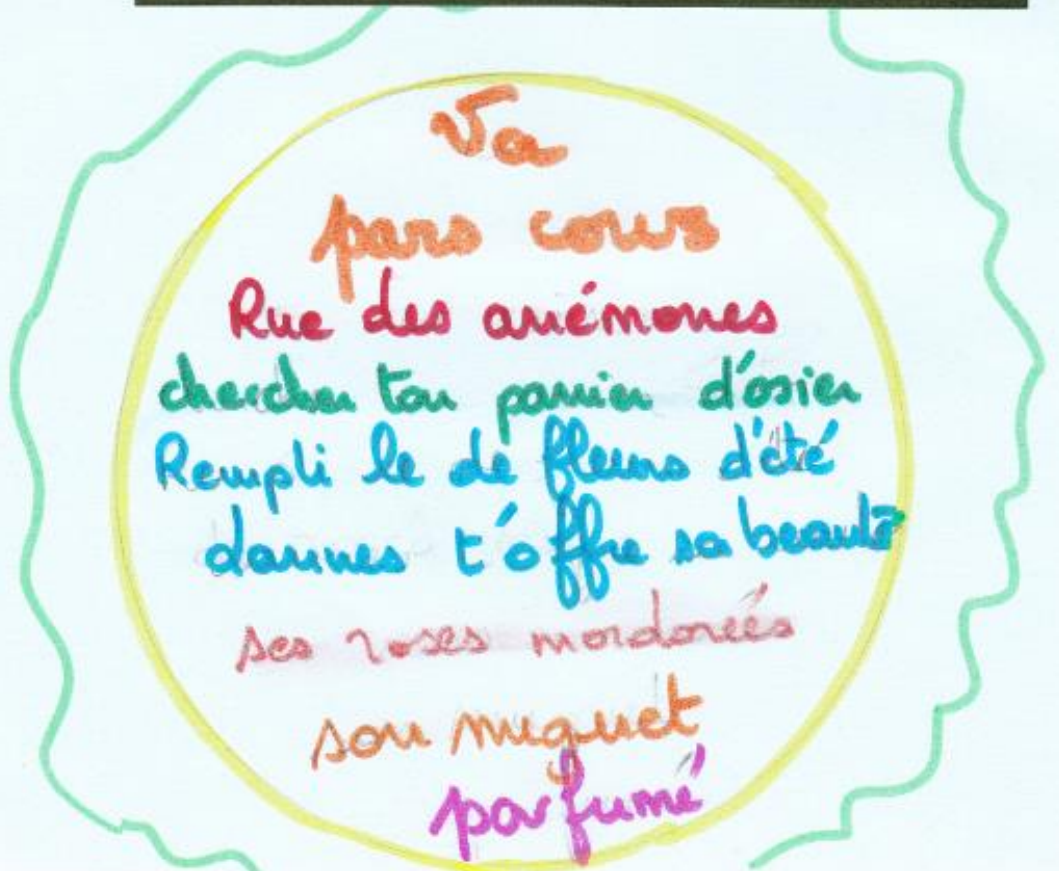 Va
pars cours
Rue des anémones
chercher ton panier d'osier
Rempli le de fleurs d'été
t'offre sa beauté
ses roses mordorées
son muguet
parfumé